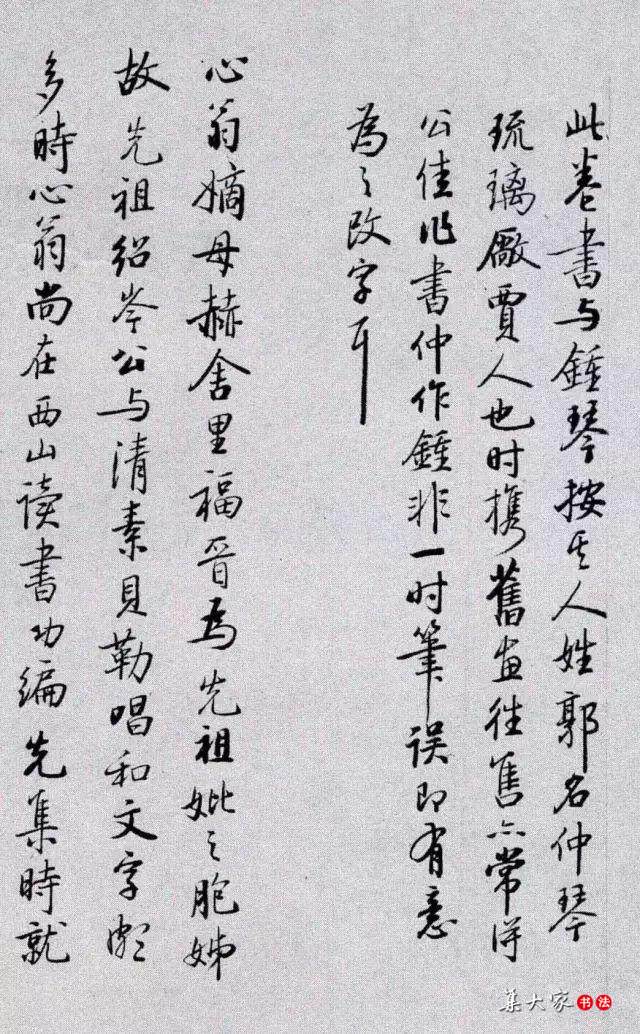 此卷書与鍾琴按其人姓郭名仲琴
琉璃廠賈人也时携舊畫往售亦常得
公佳作書仲作鍾非一时筆误即有意
為之改字耳
心翁嫡母赫舍里福晋為先祖妣之胞姊
故先祖绍岑公与清素貝勒唱和文字頗
多時心翁尚在西山读書功编先集時就
集大家书法